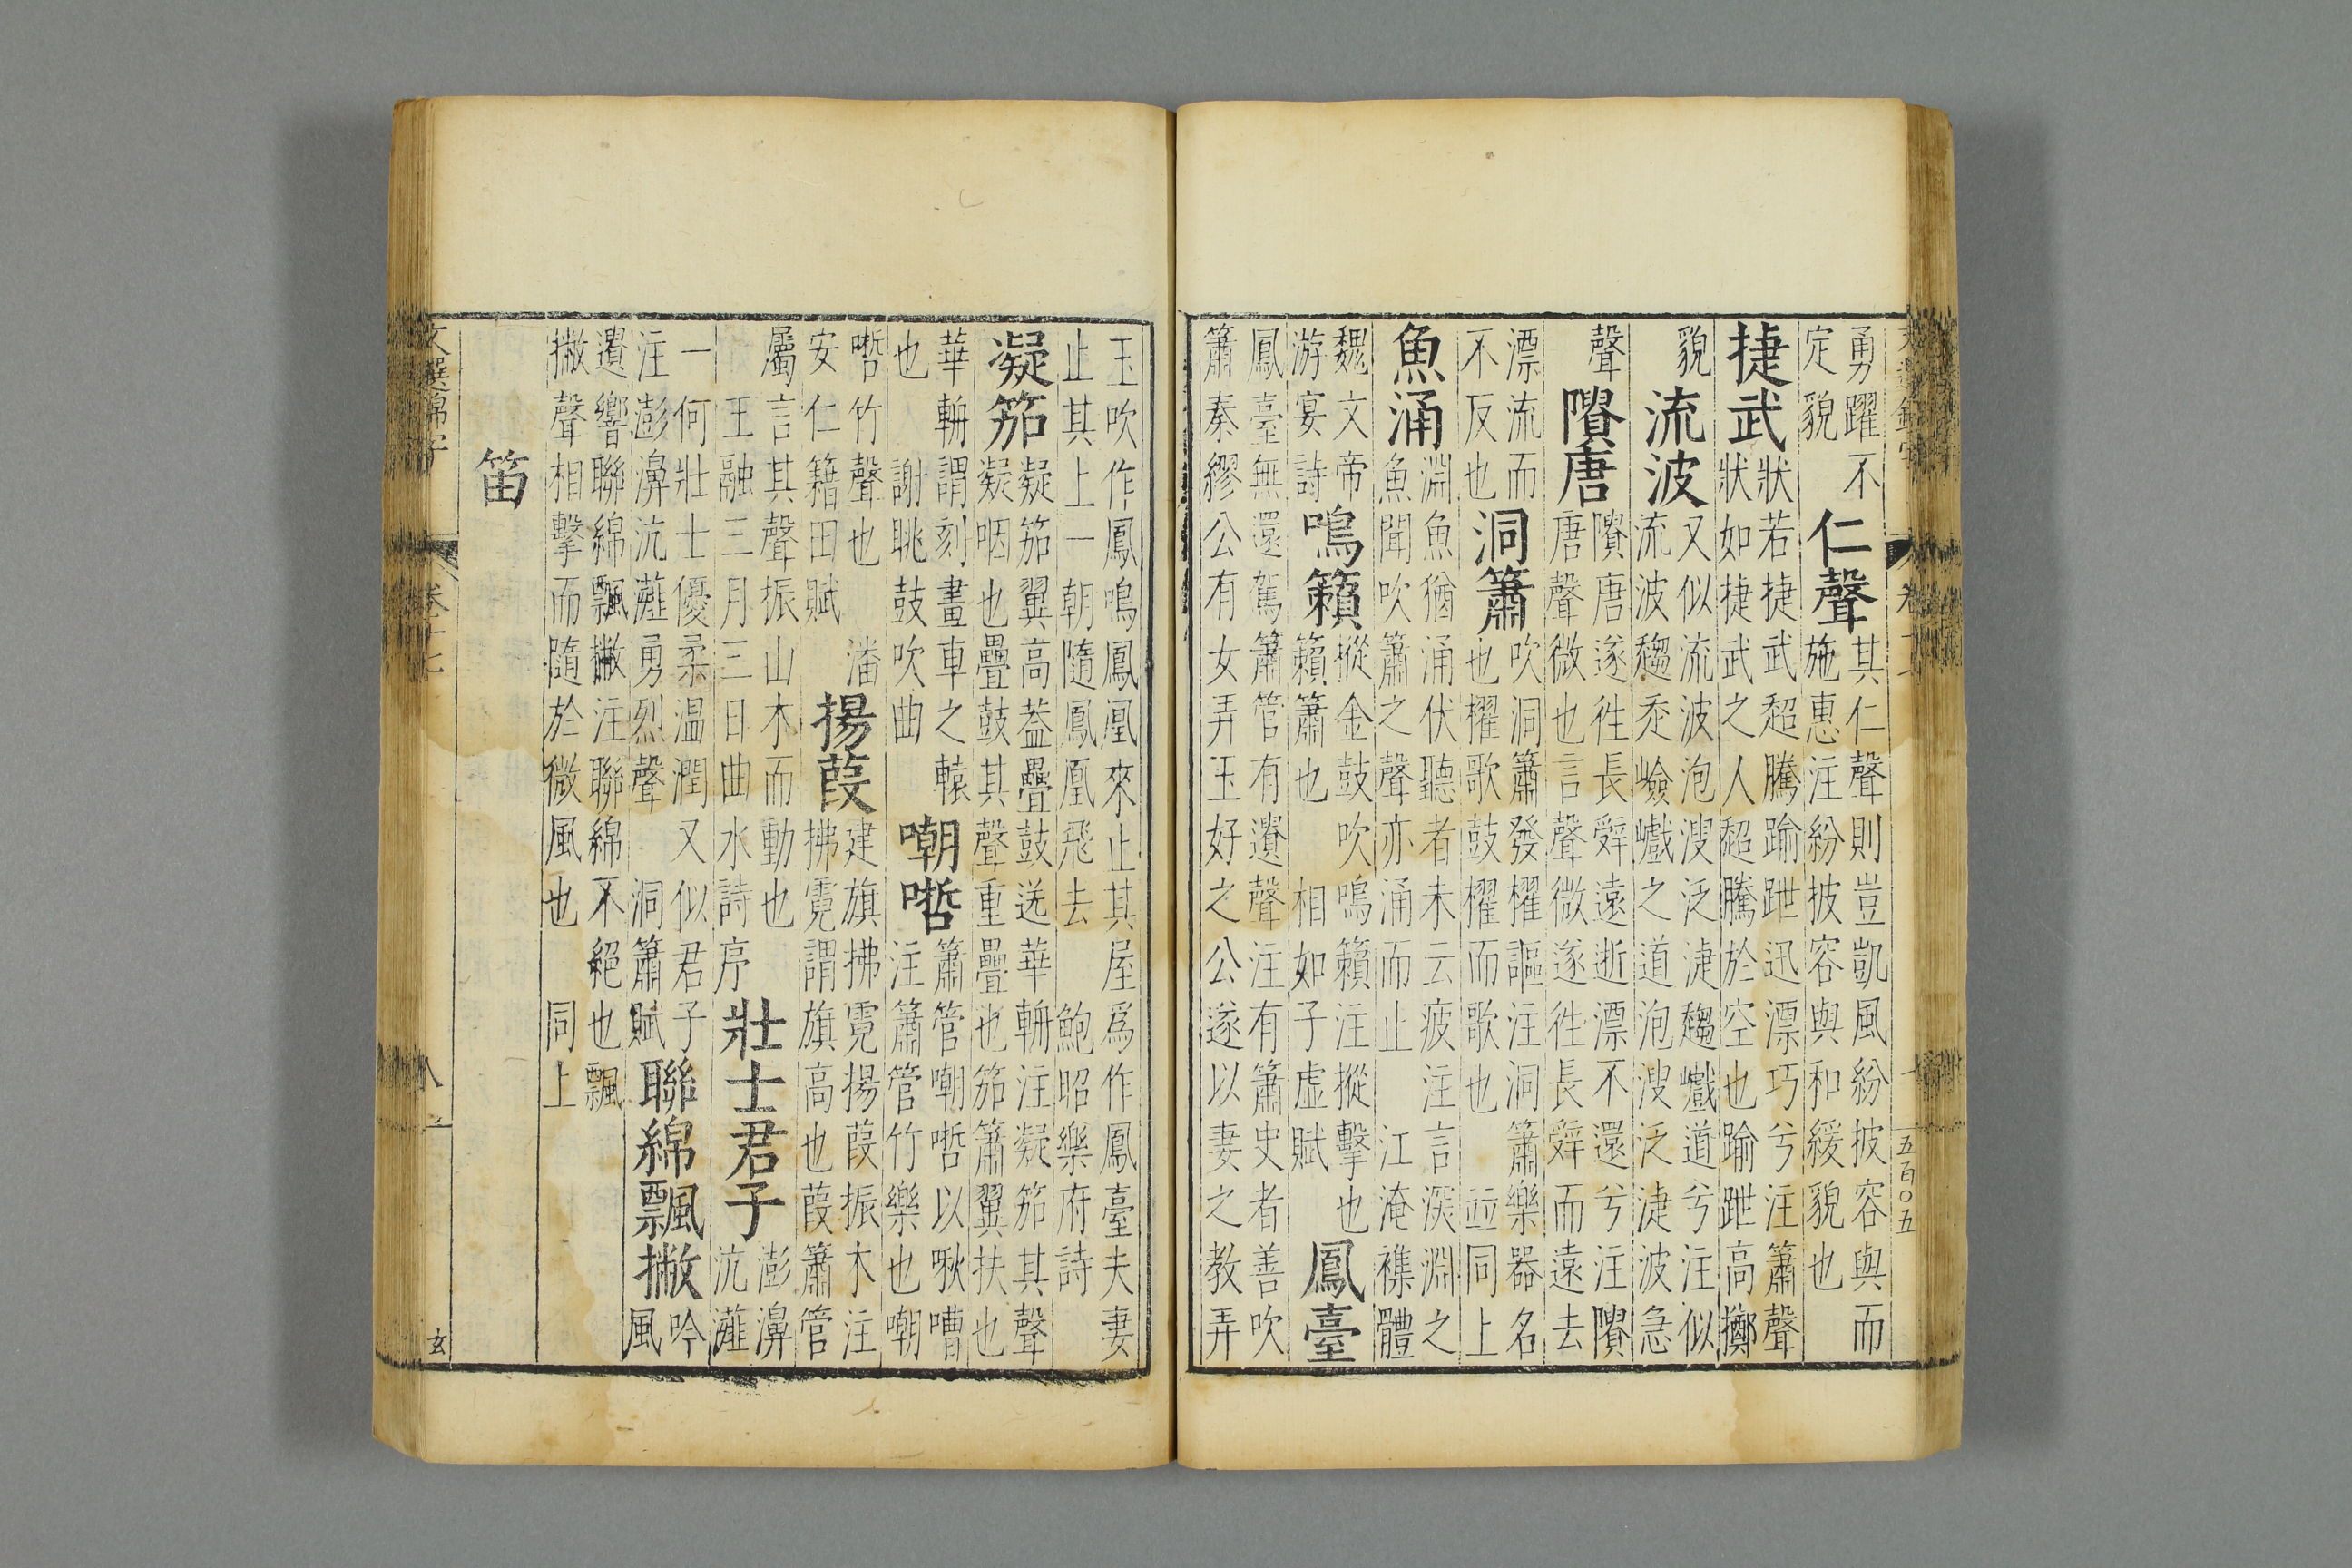 勇躍不
定貌
仁聲
其仁聲則豈凱風紛披容與而
施惠注紛披容與和緩貌也
捷武
狀若捷武超騰踰跇迅漂巧兮注簫聲
狀如捷武之人超騰於空也踰跇高擲
貌
流波
又似流波泡溲泛㴔趨巇道兮注似
流波趨坙嶮巇之道泡溲泛㴔波急
聲
隤唐
隤唐遂徃長辭遠逝漂不還兮注隤
唐聲微也言聲微遂徃長辭而遠去
漂流而
不反也
洞簫
吹洞簫發櫂謳注洞簫樂器名
也櫂歌鼓櫂而歌也 並同上
魚涌
淵魚猶涌伏聽者未云疲注言深淵之
魚聞吹簫之聲亦涌而止 江淹襍體
魏文帝
游宴詩
鳴籟
摐金鼓吹鳴籟注摐擊也
籟簫也 相如子虛賦
鳳臺
鳳臺無還駕簫管有遺聲注有簫史者善吹
簫秦繆公有女弄玉好之公遂以妻之教弄
五百〇五
玉吹作鳳鳴鳳凰來止其屋爲作鳳臺夫妻
止其上一朝隨鳳凰飛去 鮑昭樂府詩
凝笳
凝笳翼高葢疊鼓送華輈注凝笳其聲
凝咽也疊鼓其聲重疊也笳簫翼扶也
華輈謂刻畫車之轅
也 謝眺鼓吹曲
嘲哳
簫管嘲哳以啾嘈
注簫管竹樂也嘲
哳竹聲也 潘
安仁籍田賦
揚葭
建旗拂霓揚葭振木注
拂霓謂旗高也葭簫管
屬言其聲振山木而動也
王融三月三日曲水詩序
壯士君子
澎濞
沆漄
一何壯士優柔温潤又似君子
注澎濞沆漄勇烈聲 洞簫賦
聯綿飄撇
吟
風
遺響聯綿飄撇注聯綿不絕也飄
撇聲相擊而隨於微風也 同上
笛
文選錦字
卷十七
八
玄